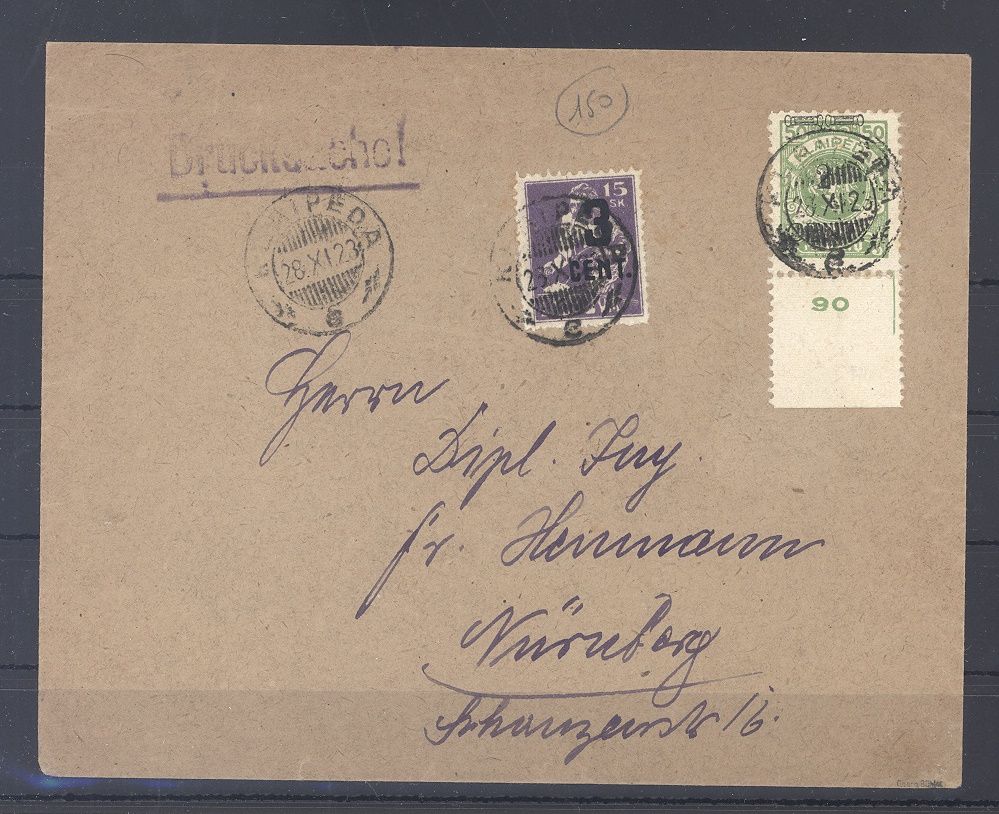 150
Drucksache!
KLAIPEDA
28.XI.23
6
15
SK.
3
CENT.
50 50
KLAIPEDA
28.XI.23
90
Herrn
Dipl. Ing.
Fr. Heinmann
Nürnberg
Schanzenstr 16.